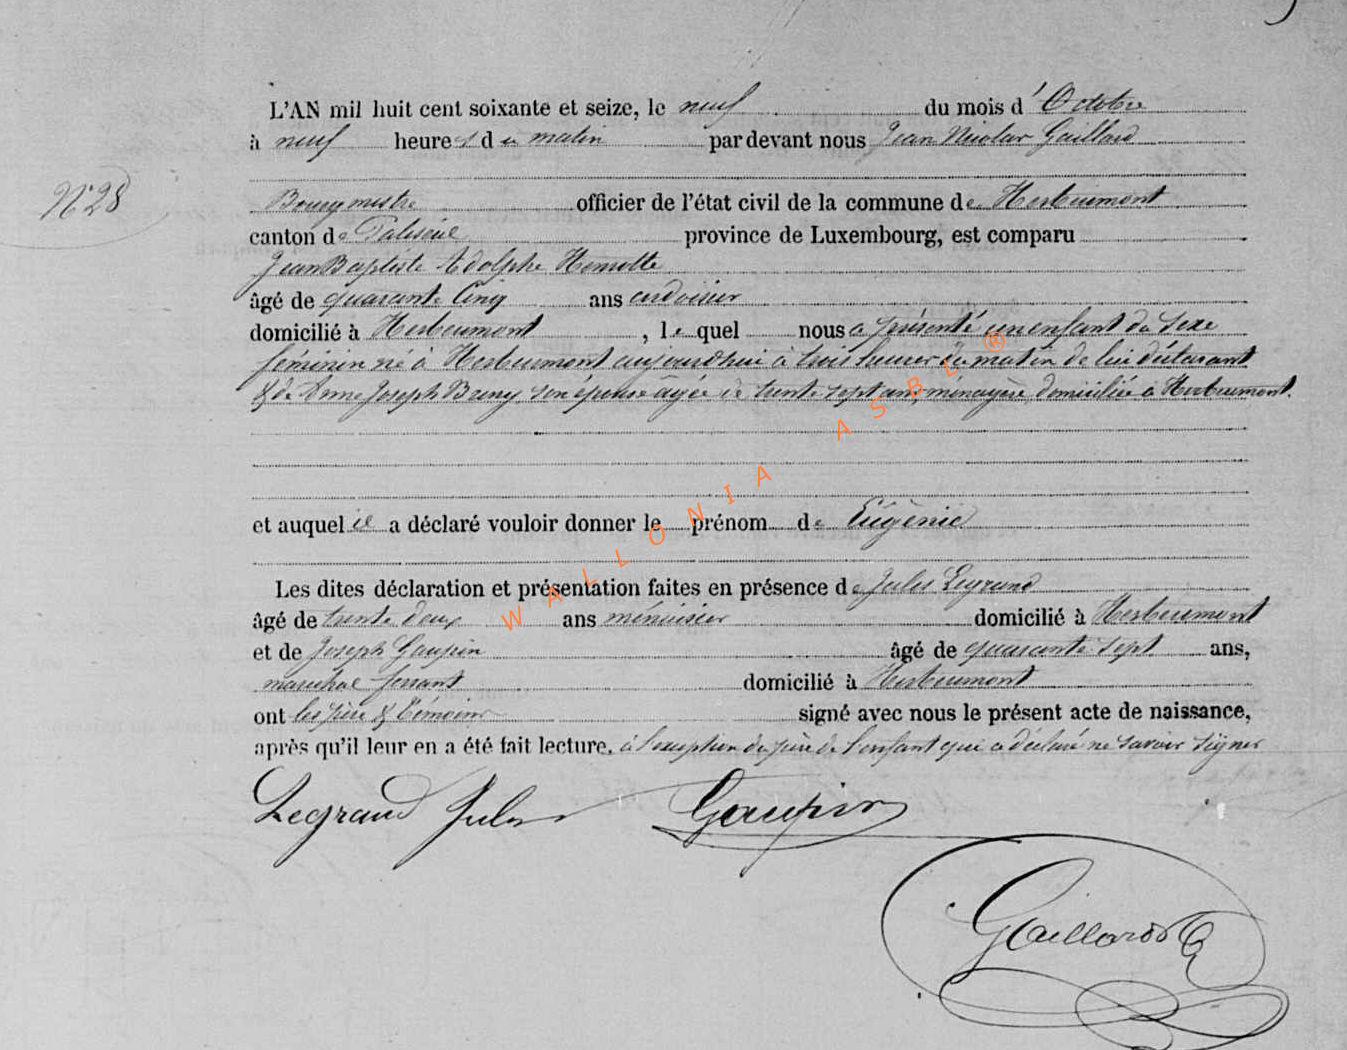 L'AN mil huit cent soixante et seize, le neuf du mois d'Octobre
à neuf heures du matin par devant nous Jean Nicolas Gaillard
N°28
Bourgmestre officier de l'état civil de la commune de Herbeumont
canton de Paliseul province de Luxembourg, est comparu
Jean Baptiste Adolphe
âgé de quarante Cinq ans ardoisier
domicilié à Herbeumont, le quel nous a présenté un enfant du sexe
féminin né à Herbeumont aujourdhui à trois heures du matin de lui déclarant
& de Anne Joseph son épouse agée de trente sept ans, ménagère, domiciliée à Herbeumont.
et auquel il a déclaré vouloir donner le prénom de Eugénie
Les dites déclaration et présentation faites en présence de Jules Legrand
âgé de trente deux ans ménuisier domicilié à Herbeumont
et de Joseph Gaupin âgé de quarante sept ans,
maréchal ferrant domicilié à Herbeumont
ont les père & témoins signé avec nous le présent acte de naissance,
après qu'il leur en a été fait lecture, à l'exception du père de l'enfant qui a déclaré ne savoir signer
Legrand Jules Gaupin
Gaillard
WALLONIA ASBL ®